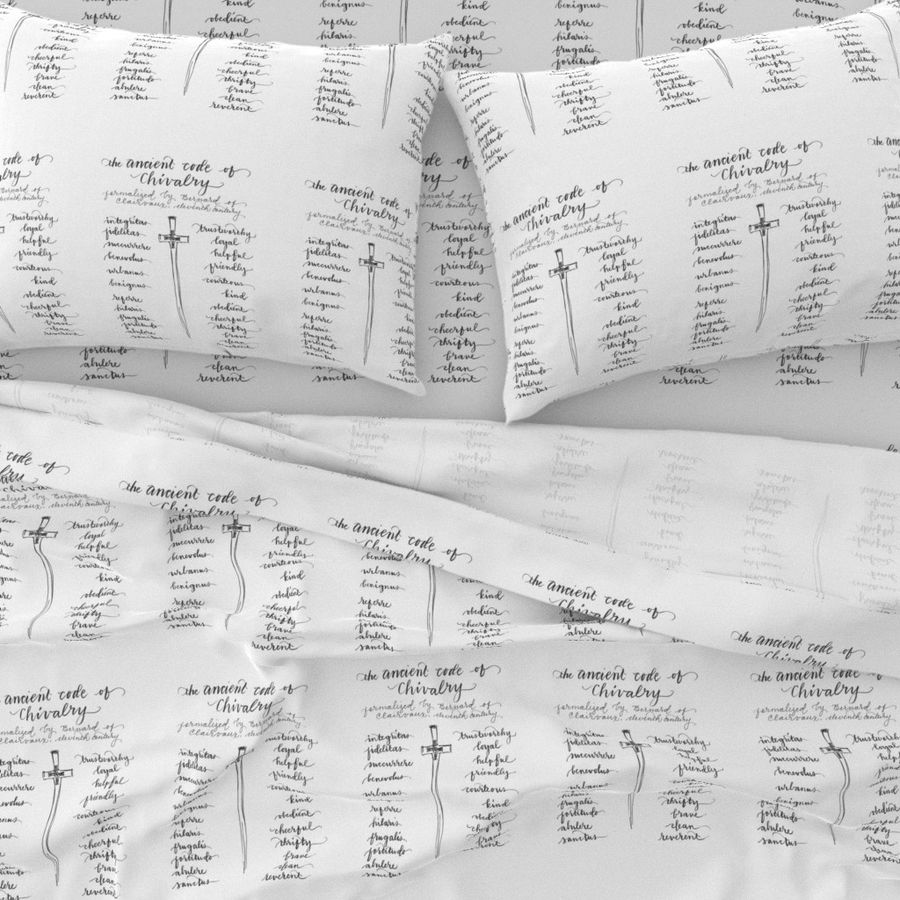 the ancient code of
Chivalry
formalized by Bernard of
Clairvaux, eleventh century
integritas
fidilitas
succurrere
benevolus
urbanus
benignus
referre
hilaris
frugalis
fortitudo
abulere
sanctus
trustworthy
loyal
helpful
friendly
courteous
kind
obedient
cheerful
thrifty
brave
clean
reverent